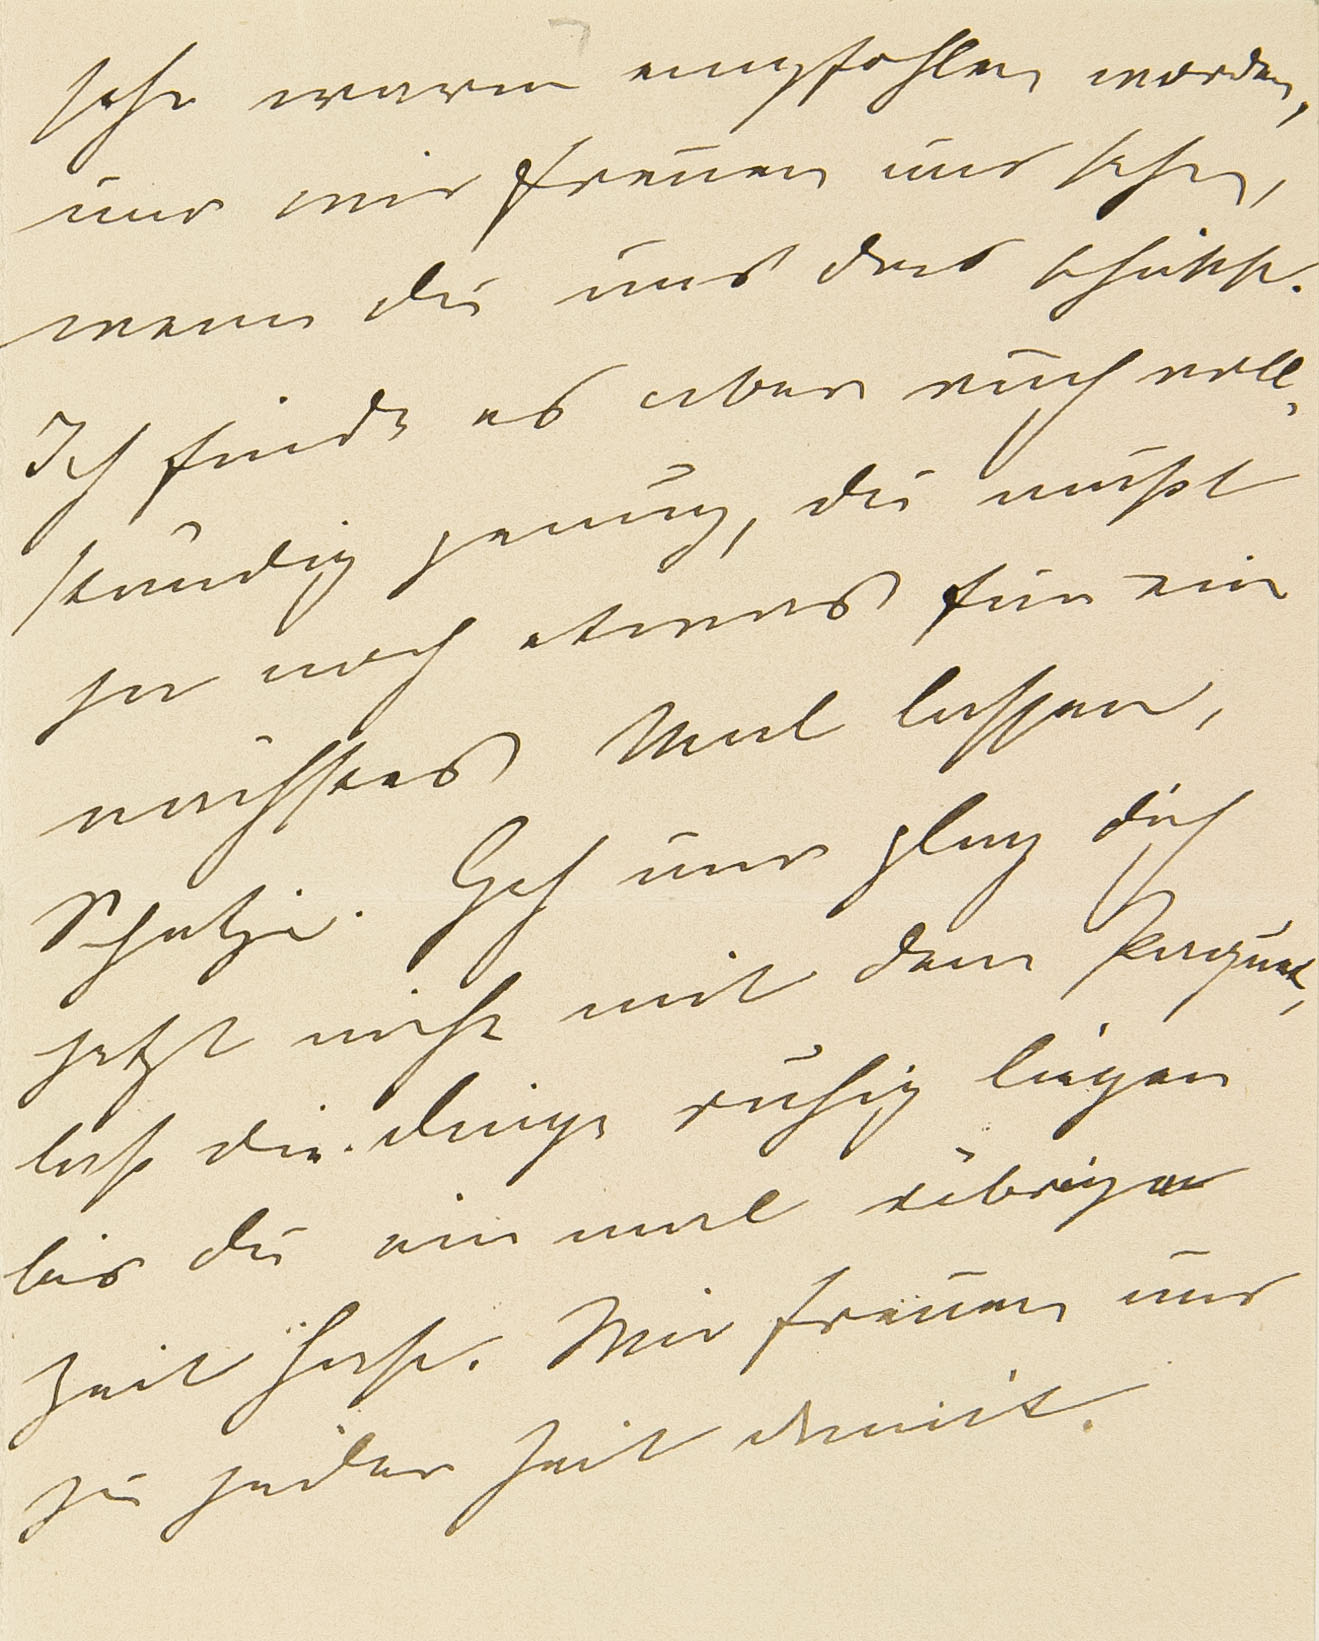 sehr warm empfohlen worden,
und wir freuen uns sehr,
wenn du uns das schickst.
Ich finde es aber auch voll-
ständig genug, du mußt
ja noch etwas für ein
nächstes Mal lassen,
Schatzi. Geh und plag dich
jetzt nicht mit dem Paquet,
laß die Dinge ruhig liegen
bis du einmal übrige
Zeit hast. Wir freuen uns
zu jeder Zeit damit.